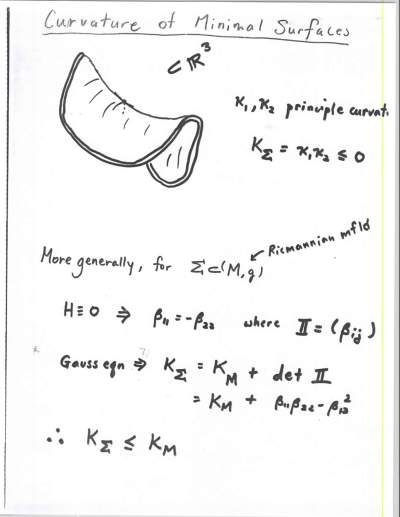 Curvature of Minimal Surfaces
⊂ ℝ³
κ₁, κ₂ principle curvat
K_Σ = κ₁κ₂ ≤ 0
Riemannian mfld
More generally, for Σ ⊂ (M, g)
H ≡ 0 ⇒ β₁₁ = -β₂₂ where II = (β_ij)
Gauss eqn ⇒ K_Σ = K_M + det II
= K_M + β₁₁β₂₂ - β₁₂²
∴ K_Σ ≤ K_M